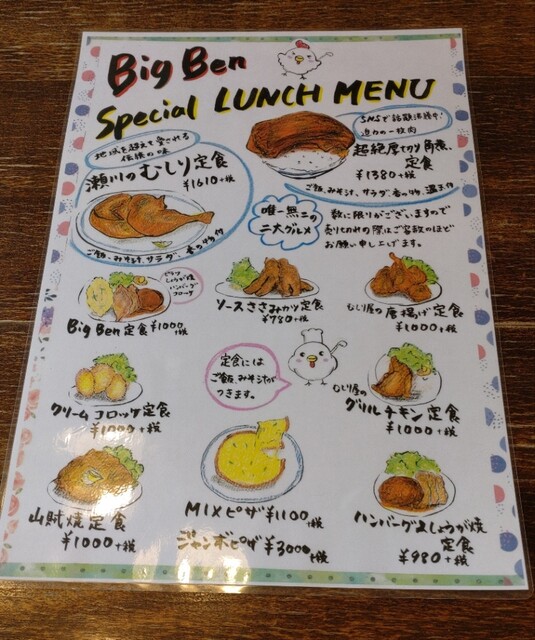 Big Ben
Special LUNCH MENU
地域を超えて愛される
伝説の味
瀬川のむしり定食
¥1610+税
ご飯、みそ汁、サラダ、香の物付
SNSで話題沸騰中!
迫力の一枚肉
超絶厚切り角煮
定食
¥1380+税
ご飯、みそ汁、サラダ、香の物、温玉付
唯一無二の
二大グルメ
数に限りがございますので
売り切れの際はご容赦のほど
お願い申し上げます。
ピラフ
しょうが焼
ハンバーグ
コロッケ
Big Ben 定食 ¥1000
+税
ソースささみカツ定食
¥780+税
むしり屋の唐揚げ定食
¥1,000+税
クリームコロッケ定食
¥1000+税
定食には
ご飯、みそ汁が
つきます。
むしり屋の
グリルチキン定食
¥1000+税
山賊焼定食
¥1000+税
MIXピザ ¥1100
+税
ジャンボピザ ¥3000+税
ハンバーグ&しょうが焼
定食
¥980+税